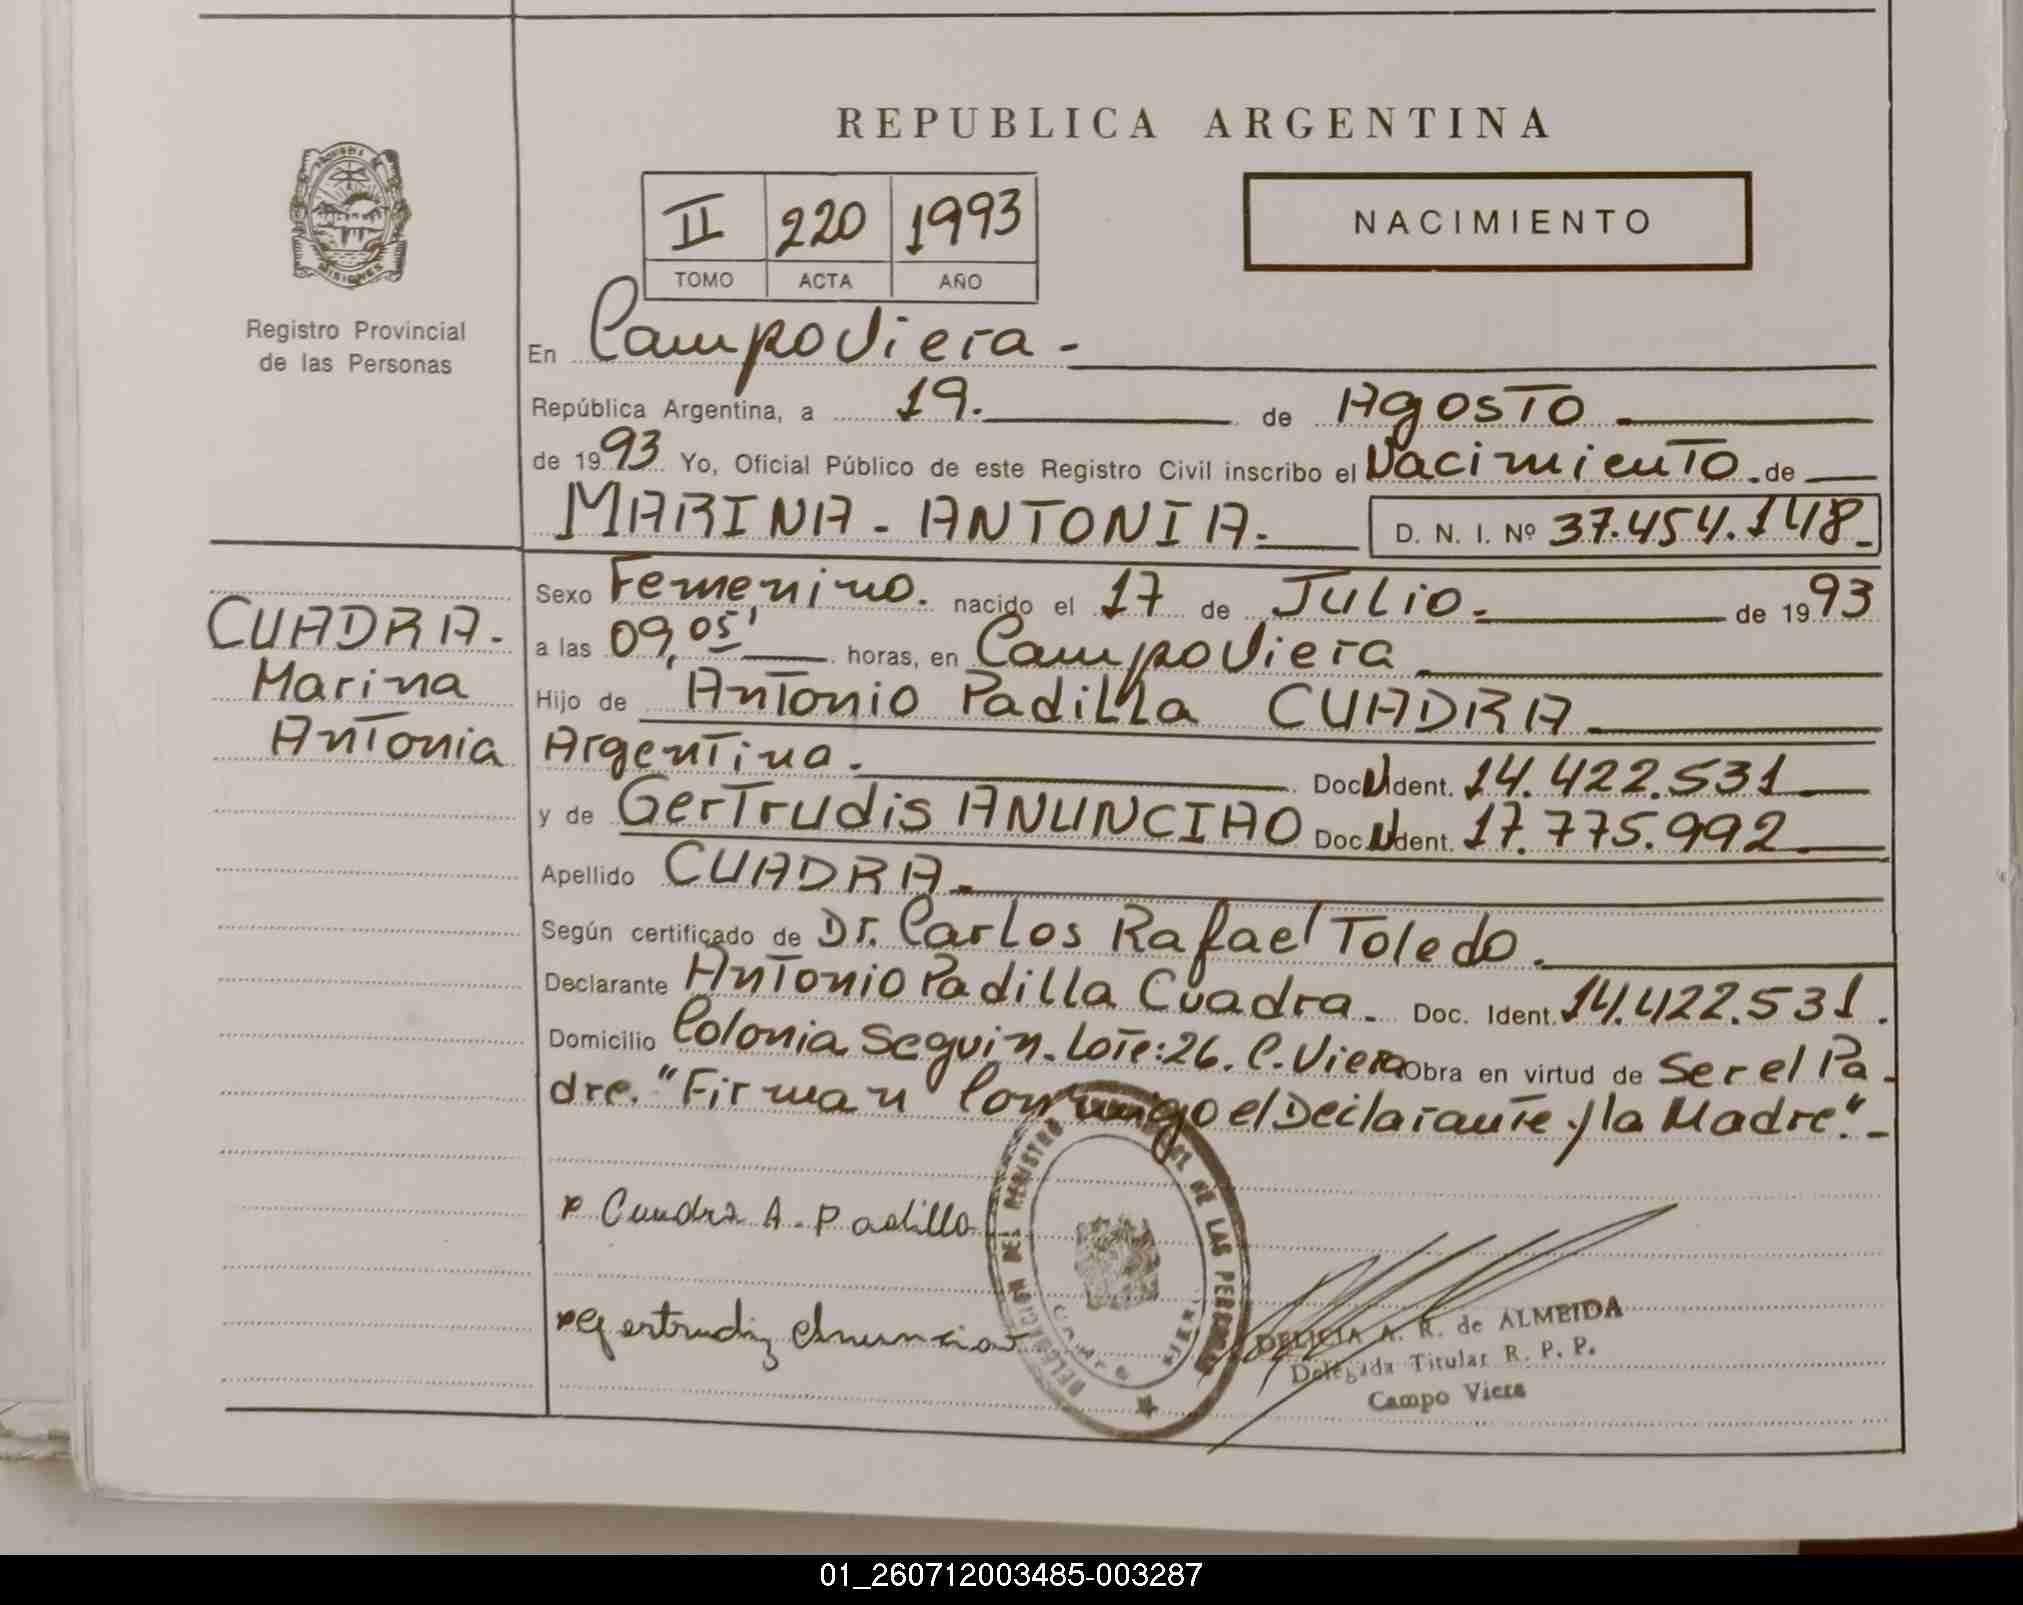 REPUBLICA ARGENTINA
II 220 1993
TOMO ACTA AÑO
NACIMIENTO
MISIONES
Registro Provincial
de las Personas
En Campo Viera -
República Argentina, a 19. de Agosto
de 1993 Yo, Oficial Público de este Registro Civil inscribo el Nacimiento de
MARINA - ANTONIA. D. N. I. Nº 37.454.148
CUADRA.
Marina
Antonia
Sexo Femenino. nacido el 17 de Julio. de 1993
a las 09,05' horas, en Campo Viera
Hijo de Antonio Padilla CUADRA
Argentino. Doc. Ident. 14.422.531
y de Gertrudis ANUNCIAO Doc. Ident. 17.775.992
Apellido CUADRA
Según certificado de Dr. Carlos Rafael Toledo.
Declarante Antonio Padilla Cuadra. Doc. Ident. 14.422.531.
Domicilio Colonia Seguin. Lote: 26. C. Viera Obra en virtud de Ser el Pa-
dre. "Firman Conmigo el Declarante y la Madre".-
Cuadra A. Padilla
Gertrudiz Anunciao
DELEGACION DEL REGISTRO DE LAS PERSONAS
DELICIA A. R. de ALMEIDA
Delegada Titular R. P. P.
Campo Viera
01_260712003485-003287